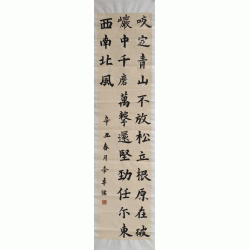 咬定青山不放松立根原在破
巖中千磨萬擊還堅勁任尔東
西南北風
辛丑春月